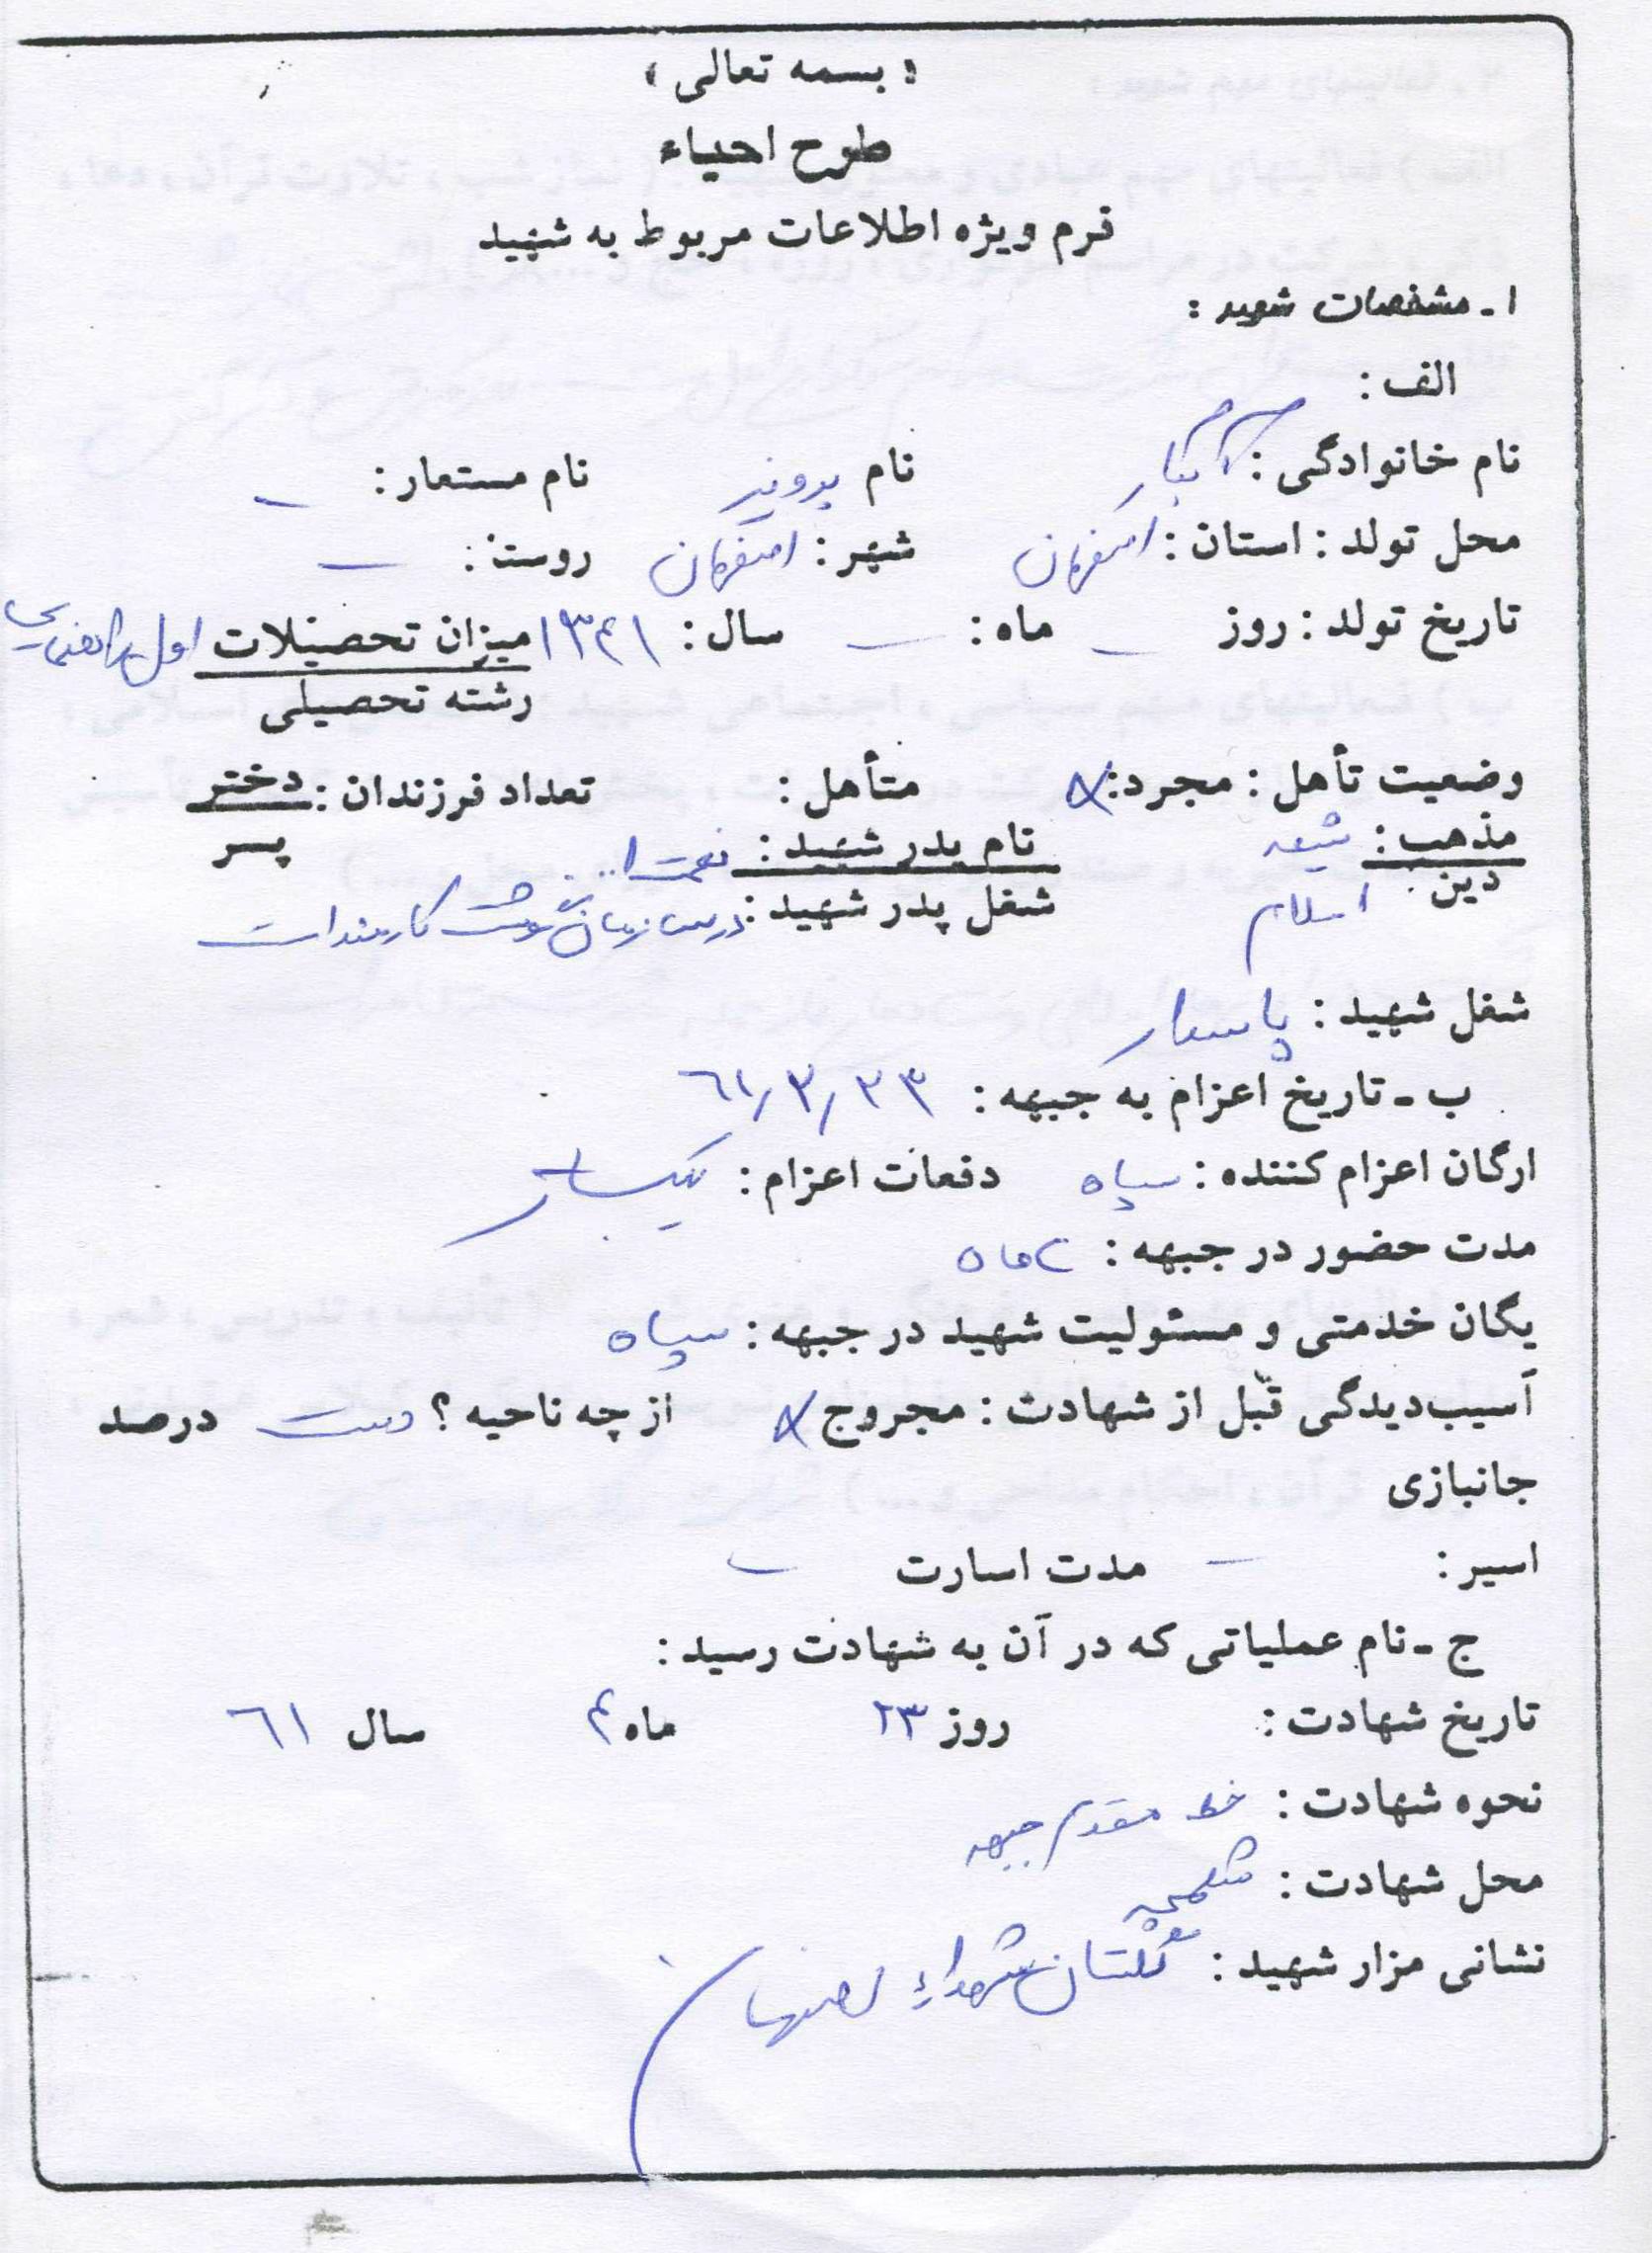 « بسمه تعالی »
طرح احیاء
فرم ویژه اطلاعات مربوط به شهید
۱ـ مشخصات شهید :
الف :
نام خانوادگی : نام پرویز نام مستعار : ـ
محل تولد : استان : اصفهان شهر : اصفهان روستا : ـ
تاریخ تولد : روز ـ ماه : ـ سال : ۱۳۴۱ میزان تحصیلات اول راهنمایی
رشته تحصیلی
وضعیت تأهل : مجرد : متأهل : تعداد فرزندان : دختر
پسر
مذهب : شیعه نام پدر شهید : نعمت ا...
دین : اسلام شغل پدر شهید : در کارمند است
شغل شهید : پاسدار
ب ـ تاریخ اعزام به جبهه : ۶۱/۳/۲۳
ارگان اعزام کننده : سپاه دفعات اعزام : یکبار
مدت حضور در جبهه : ماه
یگان خدمتی و مسئولیت شهید در جبهه : سپاه
آسیب‌دیدگی قبل از شهادت : مجروح از چه ناحیه ؟ دست درصد
جانبازی
اسیر : ـ مدت اسارت ـ
ج ـ نام عملیاتی که در آن به شهادت رسید :
تاریخ شهادت : روز ۲۳ ماه ۴ سال ۶۱
نحوه شهادت : خط مقدم جبهه
محل شهادت : شلمچه
نشانی مزار شهید : گلستان شهدای اصفهان